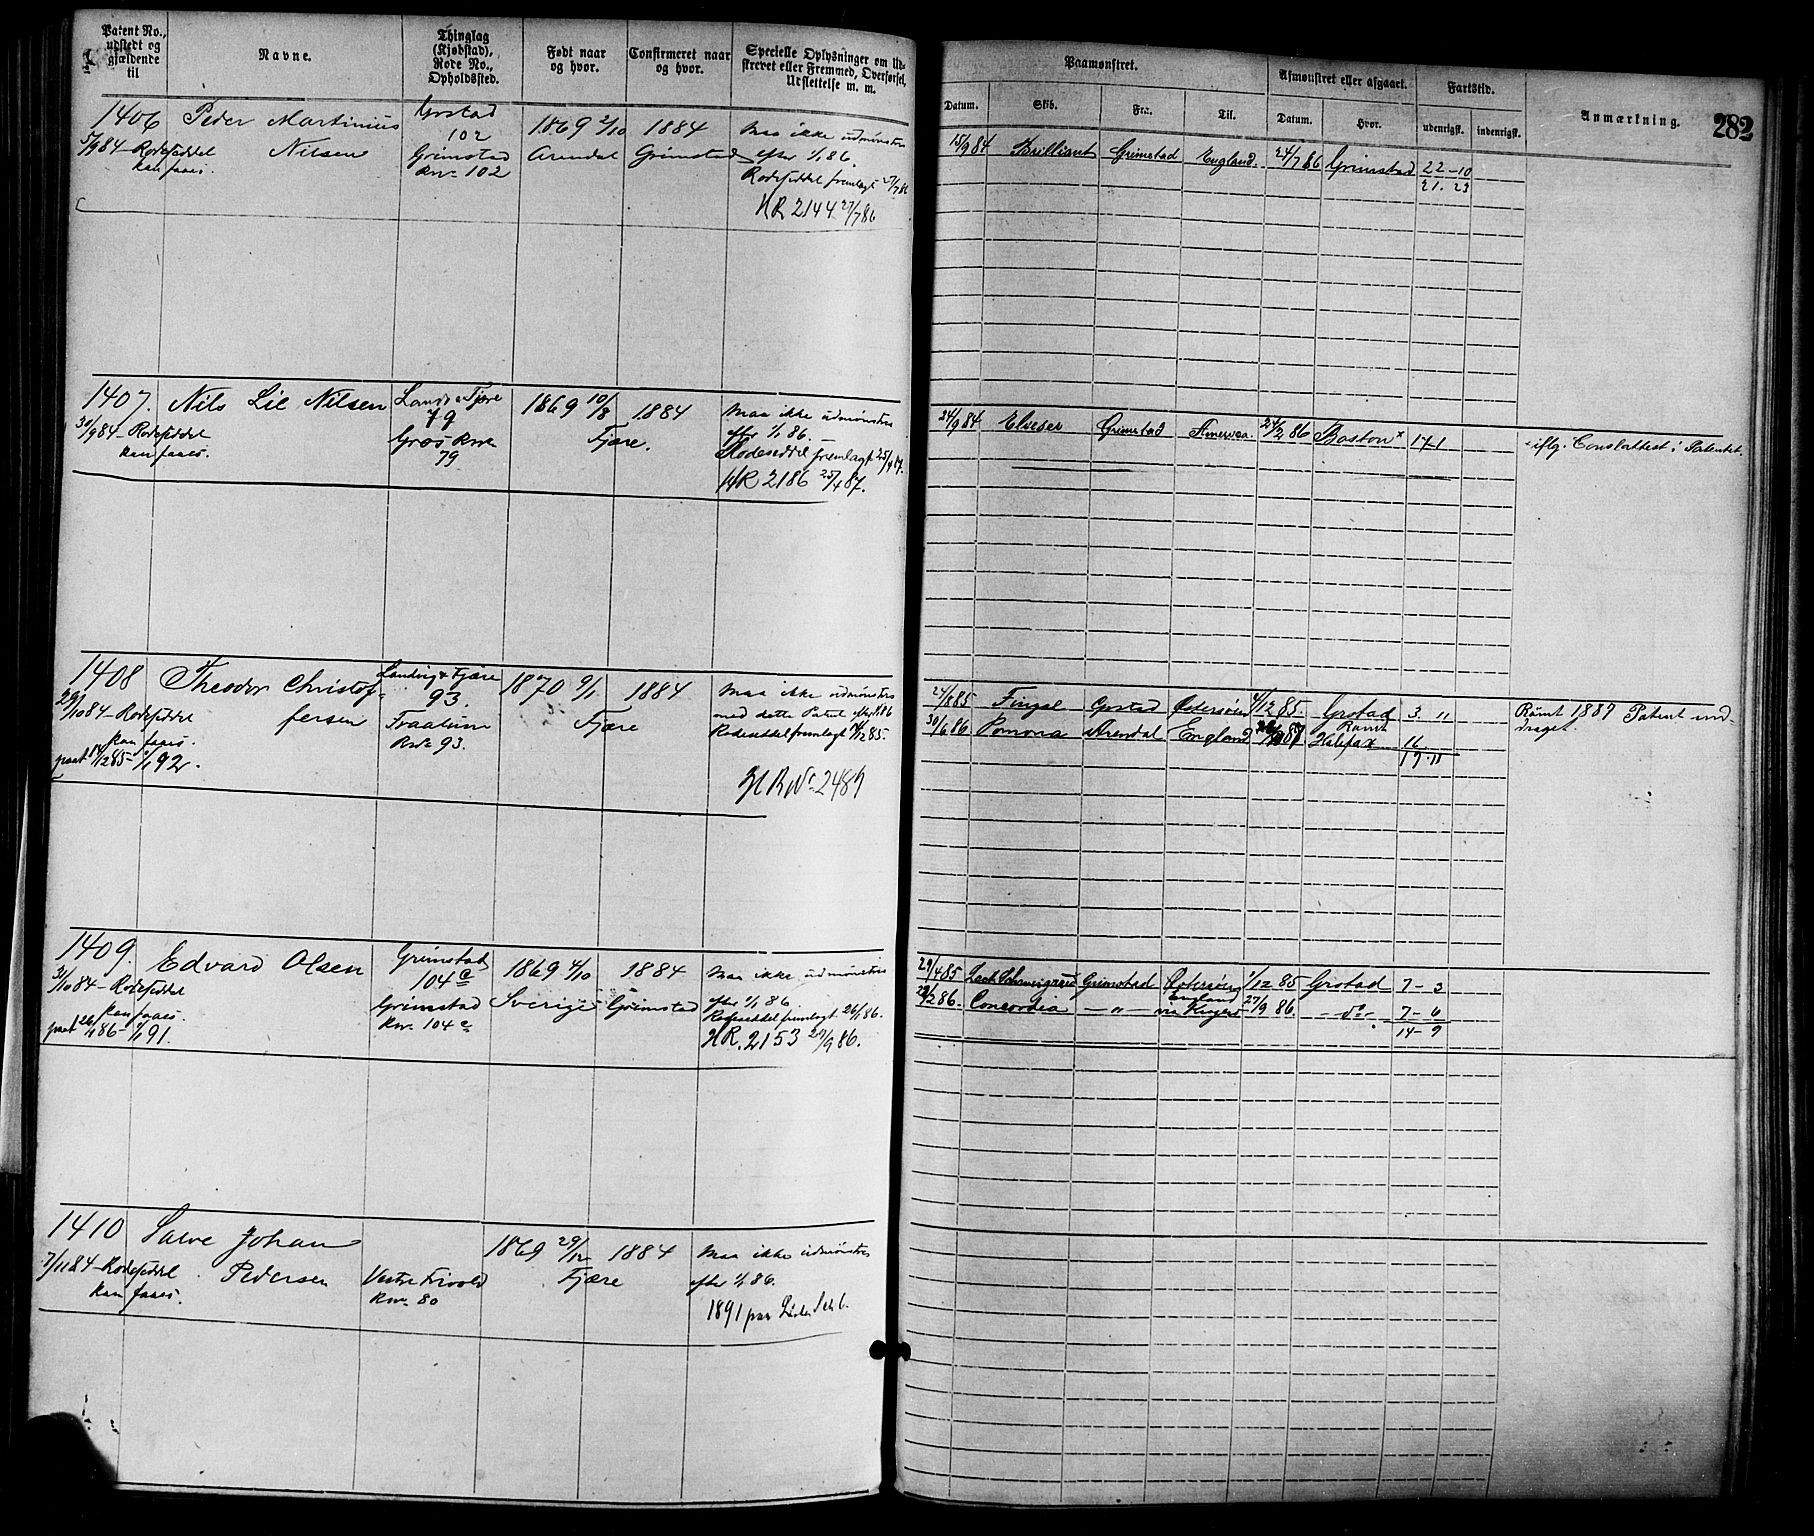 Patent No., udstedt og gjældende til
Navne.
Thinglag (Kjøbstad), Rode No., Opholdssted.
Født naar og hvor.
Confirmeret naar og hvor.
Specielle Oplysninger om Ud-
skrevet eller Fremmed, Overførsel,
Udslettelse m. m.
Paamønstret.
Afmønstret eller afgaaet.
Fartstid.
Anmærkning.
282
Datum. Skib. Fra: Til. Datum. Hvor. udenrigsk. indenrigsk.
1406 Peder Martinius Grstad 1869 2/10 1884 maa ikke udmønstres
102
5/9 84 - Rodeseddel Nilsen Grimstad Arendal Grimstad efter 1/1 86.
kan faaes. Rno 102 Rodeseddel fremlagt 27/7 86
HR 2144 27/7 86
15/9 84 Brilliant Grimstad England. 24/7 86 Grimstad 22-10
21. 23
1407. Nils Lie Nilsen Landv. Fjære 1869 10/8 1884 maa ikke udmønstres
79
30/9 84 - Rodeseddel Gros Rno Fjære. efter 1/1 86.
kan faaes. 79 Rodeseddel fremlagt 25/4 87.
HR 2186 25/4 87.
24/9 84 Elieser Grimstad America 24/2 86 Boston x 17-1 x iflg. Conslattest i Patentet.
1408 Theodor Christof- Landvig & Fjære 1870 9/1 1884 maa ikke udmønstres
93.
29/10 84 - Rodeseddel fersen Fjære med dette Patent efter 1/1 86
kan faaes. Rno 93. Rodeseddel fremlagt 14/12 85.
paat 14/12 85 - 1/1 92.
HR No 2487
24/8 85 Fingal Grstad Østersøen 4/12 85 Grstad 3. 11 Rømt 1887 Patent ind-
30/6 86 Pomona Arendal England Rømt draget.
Halifax 16
19.11
1409. Edvard Olsen Grimstad 1869 4/10 1884 maa ikke udmønstres
104 c
31/10 84 - Rodeseddel Grimstad Sverige Grimstad efter 1/1 86.
kan faaes. Rno 104 c Rodeseddel fremlagt 26/1 86.
paat 26/1 86 - 1/1 91. HR. 2153 29/9 86.
29/4 85 Grimstad Østersøen 1/12 85 Grstad 7-3
2/2 86. Concordia -"- England via 27/9 86. -do- 7-6
14-9
1410 Salve Johan 1869 29/12 1884 maa ikke udmønstres
7/11 84 - Rodeseddel Pedersen Vestre Frivold Fjære efter 1/1 86.
kan faaes. Rno 80
1891 paa